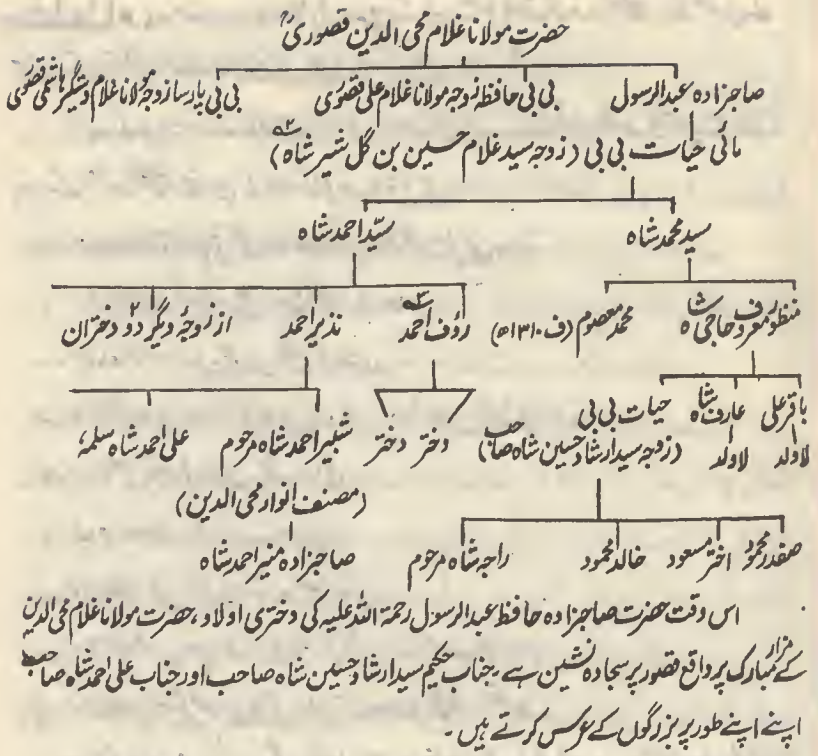 حضرت مولانا غلام محی الدین قصوریؒ
صاجزادہ عبدالرسول بی بی حافظہ زوجہ مولانا غلام علی قصوری بی بی پارسا زوجہ مولانا غلام دستگیر ہاشمی قصوری
مائی حیات بی بی (زوجہ سید غلام حسین بن گل شیر شاہ)
سید محمد شاہ سید احمد شاہ
منظور معروف حاجی شاہ محمد معصوم (ف ۔ ۱۳۱۰ھ) رؤف احمد نذیر احمد از زوجۂ دیگر دو ۲ دختران
باقر علی عارف شاہ حیات بی بی دختر دختر شبیر احمد شاہ مرحوم علی احمد شاہ سلمہٗ
لاولد لاولد (زوجہ سید ارشاد حسین شاہ صاحب)
(مصنف انوار محی الدین)
صفدر محمود اختر مسعود خالد محمود راجہ شاہ مرحوم صاجزادہ منیر احمد شاہ
اس وقت حضرت صاجزادہ حافظ عبدالرسول رحمۃ اللہ علیہ کی دختری اولاد، حضرت مولانا غلام محی الدین
کے مزار مبارک پر واقع قصور پر سجادہ نشین ہے ۔ جناب حکیم سید ارشاد حسین شاہ صاحب اور جناب علی احمد شاہ صاحب
اپنے اپنے طور پر بزرگوں کے عرس کرتے ہیں ۔